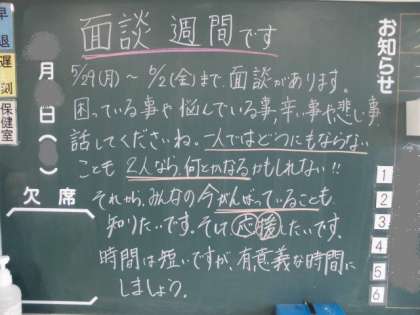 面談週間です
5/29(月)～6/2(金)まで、面談があります。
困っている事や悩んでいる事、辛い事や悲しい事
話してくださいね。一人ではどうにもならない
ことも2人なら、何とかなるかもしれない!!
それから、みんなの今がんばっていることも
知りたいです。そして応援したいです。
時間は短いですが、有意義な時間に
しましょう。
早退
遅刻
保健室
月
日(
)
欠席
お知らせ
1
2
3
4
5
6